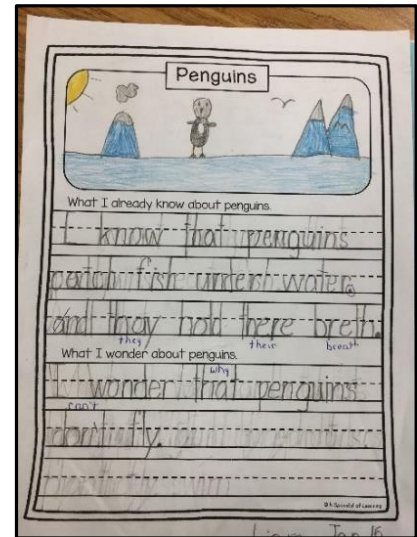 Penguins
What I already know about penguins.
I know that penguins
catch fish under water.
and thay hold there breth.
they their breath
What I wonder about penguins.
why
I wonder that penguins
can't
don't fly.
Liam Jan 16